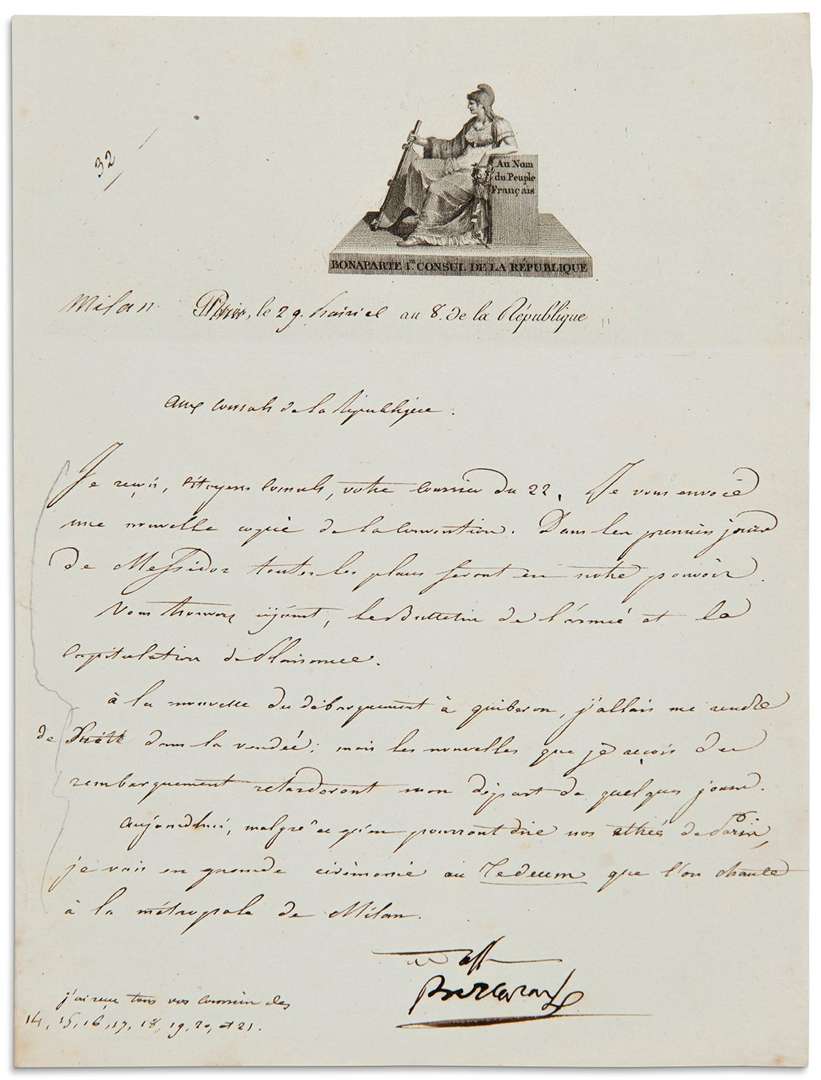 32
Au Nom
du Peuple
Français
BONAPARTE 1er CONSUL DE LA RÉPUBLIQUE
Milan Paris, le 29. prairial an 8. de la République
aux Consuls de la République.
Je reçois, Citoyens Consuls, votre Courrier du 22. Je vous envoie
une nouvelle copie de la Convention. Dans les premiers jours
de Messidor toutes les places seront en notre pouvoir.
Vous trouverez cijoint, le Bulletin de l'armée et la
Capitulation de Plaisance.
à la nouvelle du débarquement à quiberon, j'allais me rendre
de suite dans la vendée; mais les nouvelles que je reçois du
rembarquement retarderont mon départ de quelques jours.
Aujourdhui, malgré ce qu'en pourront dire nos athées de Paris,
je vais en grande cérémonie au Tedeum que l'on chante
à la métropole de Milan.
Bonaparte
j'ai reçu tous vos Courriers des
14, 15, 16, 17, 18, 19, 20, et 21.